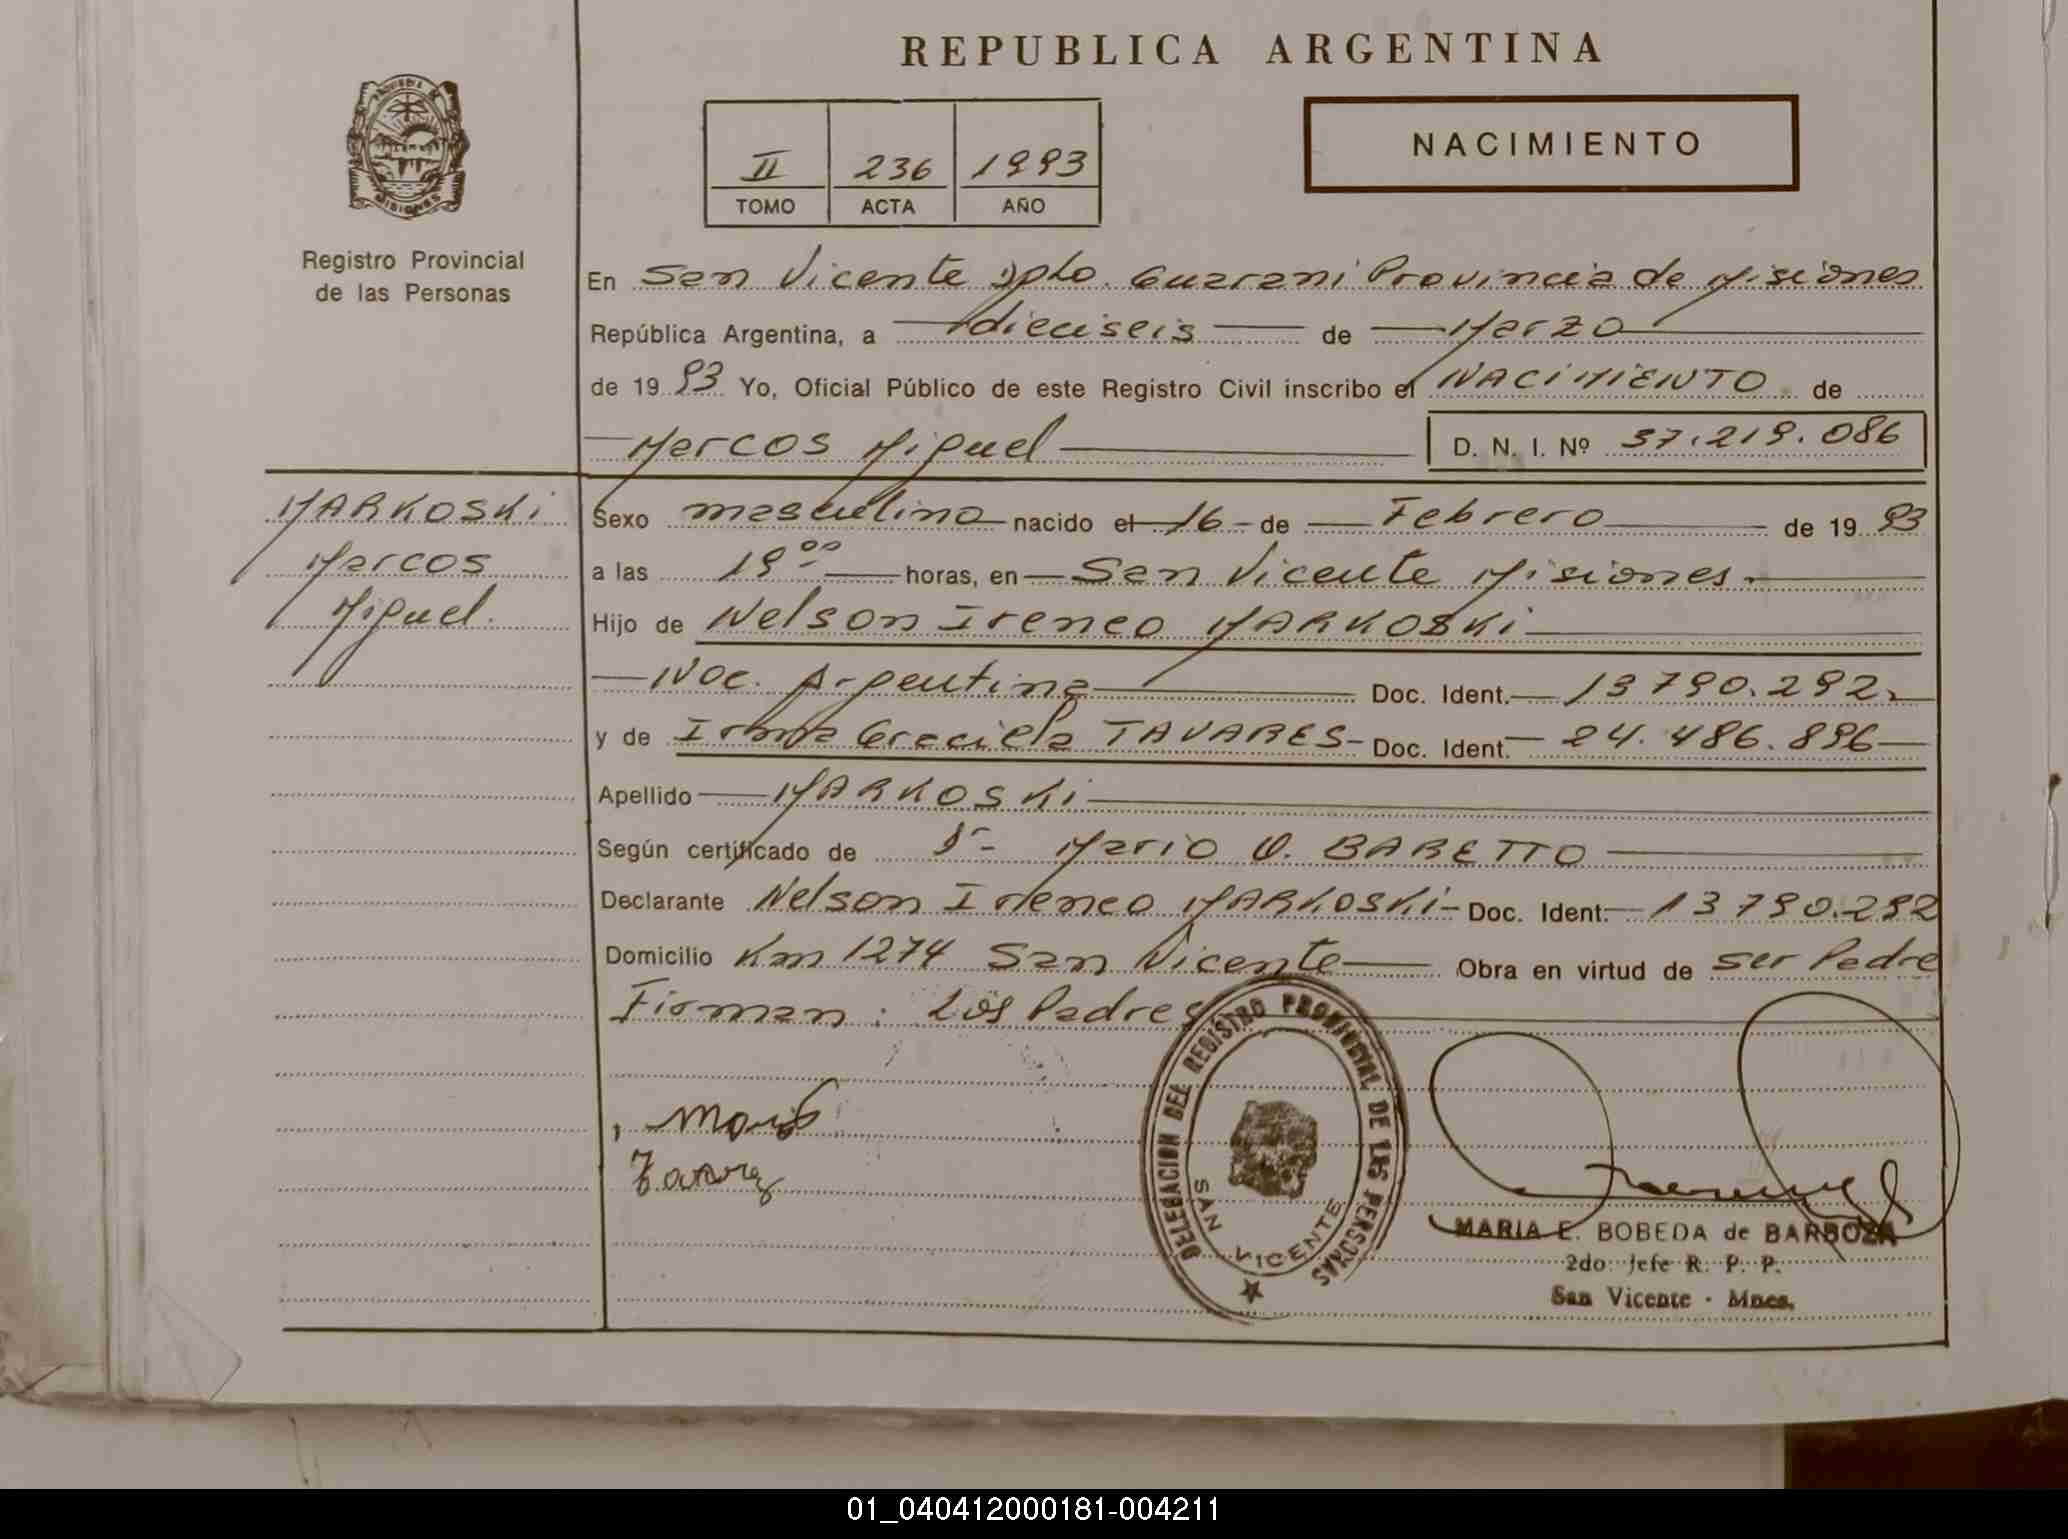 REPUBLICA ARGENTINA
II 236 1993
TOMO ACTA AÑO
NACIMIENTO
MISIONES
Registro Provincial
de las Personas
En San Vicente Dpto. Guarani Provincia de Misiones
República Argentina, a dieciseis de Marzo
de 1993 Yo, Oficial Público de este Registro Civil inscribo el NACIMIENTO de
Marcos Miguel D. N. I. Nº 37.219.086
MARKOSKi
Marcos
Miguel.
Sexo masculino nacido el 16 de Febrero de 1993
a las 19⁰⁰ horas, en San Vicente Misiones.
Hijo de Nelson Ireneo MARKOSKi
Nac. Argentina Doc. Ident. 13790.292
y de Irma Graciela TAVARES Doc. Ident. 24.486.896
Apellido MARKOSKi
Según certificado de Dr Mario O. BARETTO
Declarante Nelson Ireneo MARKOSKi Doc. Ident. 13790.292
Domicilio Km 1274 San Vicente Obra en virtud de ser Padre
Firman: Los Padres
DELEGACION DEL REGISTRO PROVINCIAL DE LAS PERSONAS
SAN VICENTE
MARIA E. BOBEDA de BARBOZA
2do. Jefe R. P. P.
San Vicente - Mnes.
01_040412000181-004211